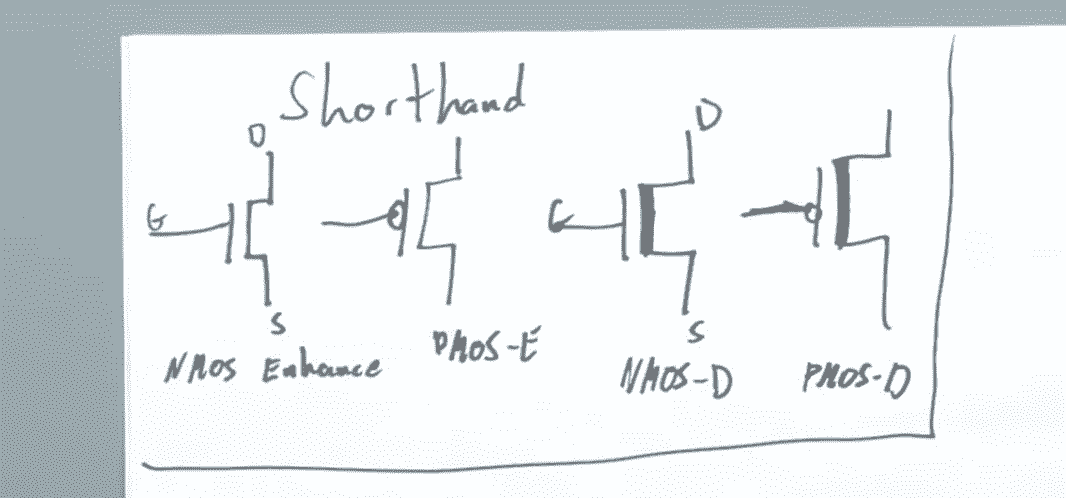 Shorthand
D
D
G
G
S
S
NMOS Enhance
PMOS-E
NMOS-D
PMOS-D